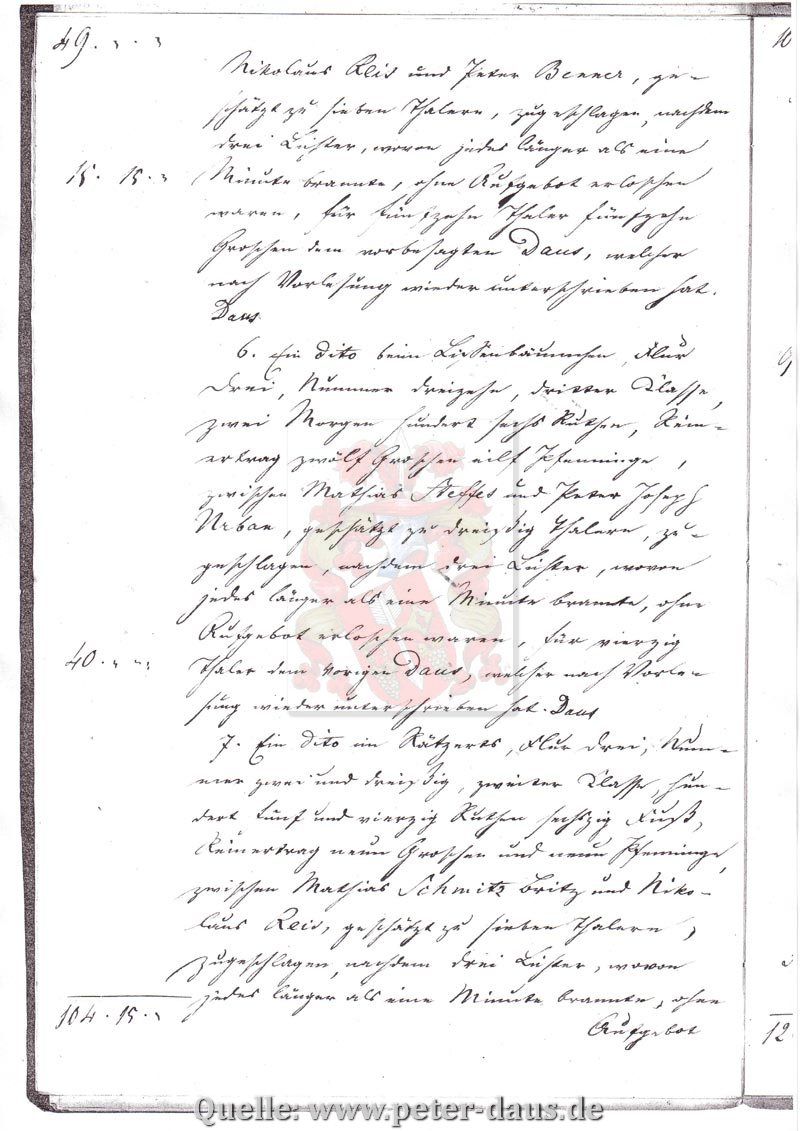 49. " "
Nikolaus Reis und Peter Benner, ge-
schätzt zu sieben Thalern, zugeschlagen, nachdem
drei Lichter, wovon jedes länger als eine
15. 15. "
Minute brannte, ohne Aufgebot erloschen
waren, für fünfzehn Thaler fünfzehn
Groschen dem vorbesagten Daus, welcher
nach Vorlesung wieder unterschrieben hat.
Daus
6. Ein dito beim Flur
drei, Nummer dreizehn, dritter Classe,
zwei Morgen hundert sechs Ruthen, Rein-
ertrag zwölf Groschen eilf Pfenninge,
zwischen Mathias Steffes und Peter Joseph
Urban, geschätzt zu dreißig Thalern, zu-
geschlagen, nachdem drei Lichter, wovon
jedes länger als eine Minute brannte, ohne
Aufgebot erloschen waren, für vierzig
40. " "
Thaler dem vorigen Daus, welcher nach Vorle-
sung wieder unterschrieben hat. Daus
7. Ein dito im Flur drei, Num-
mer zwei und dreißig, zweiter Classe, hun-
dert fünf und vierzig Ruthen sechszig Fuß,
Reinertrag neun Groschen und neun Pfenninge,
zwischen Mathias Schmitz Britz und Niko-
laus Reis, geschätzt zu sieben Thalern,
zugeschlagen, nachdem drei Lichter, wovon
jedes länger als eine Minute brannte, ohne
104. 15. "
Aufgebot
10
12
Quelle: www.peter-daus.de